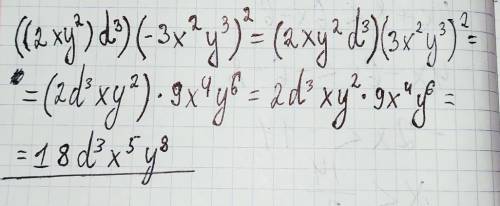 ((2xy²)d³)(-3x²y³)² = (2xy²d³)(3x²y³)² =
= (2d³xy²)·9x⁴y⁶ = 2d³xy²·9x⁴y⁶ =
= 18d³x⁵y⁸